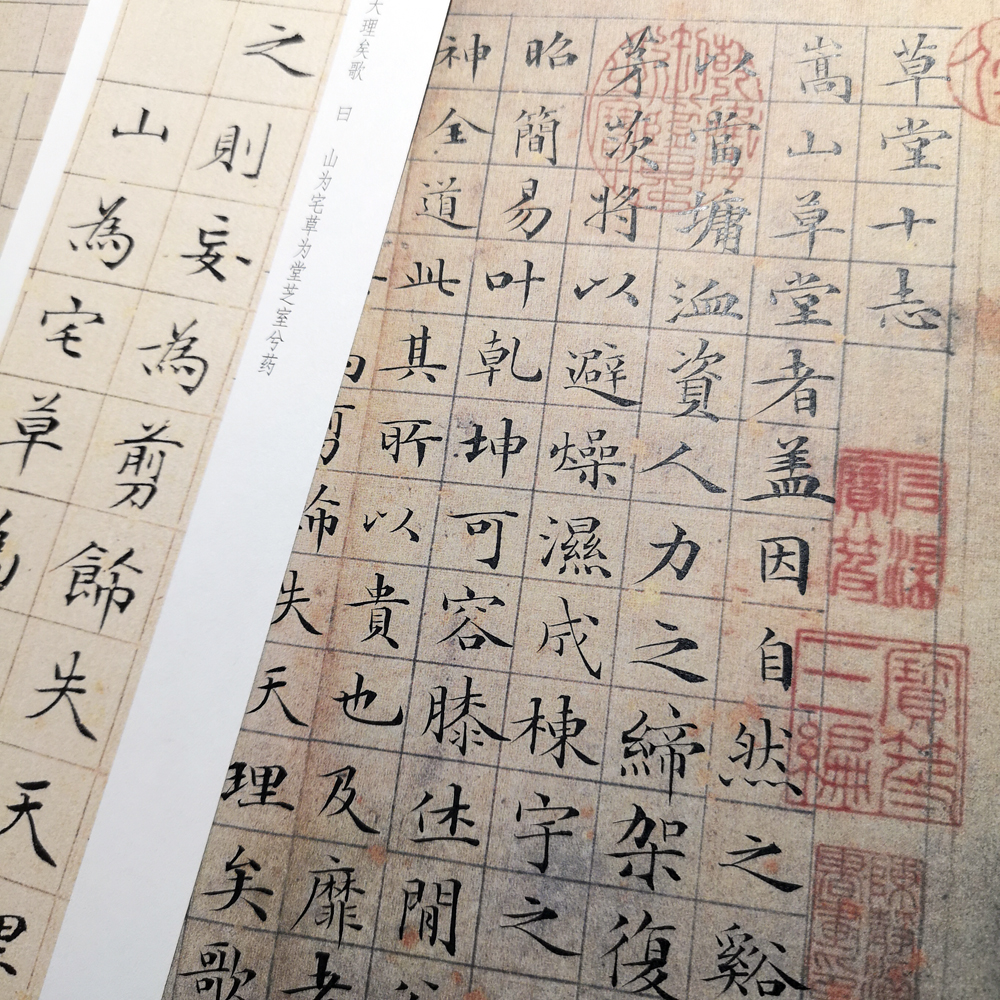 草堂十志
嵩山草堂者盖因自然之谿
以當墉洫資人力之締架復
茅茨将以避燥濕成棟宇之
昭簡易叶乾坤可容膝休閒
神全道此其所以貴也及靡者
失天理矣歌
理矣歌 曰 山为宅草为堂芝室兮药
之則妄為剪飾失天
山為宅草為